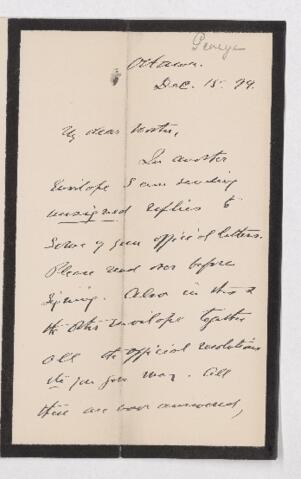 George
Ottawa.
Dec. 15. 99.
My dear
In another
Envelope I am sending
unsigned replies to
some of your official letters.
Please read over before
signing. Also in this &
the other envelope together
all the official resolutions
you gave me. All
these are now answered,